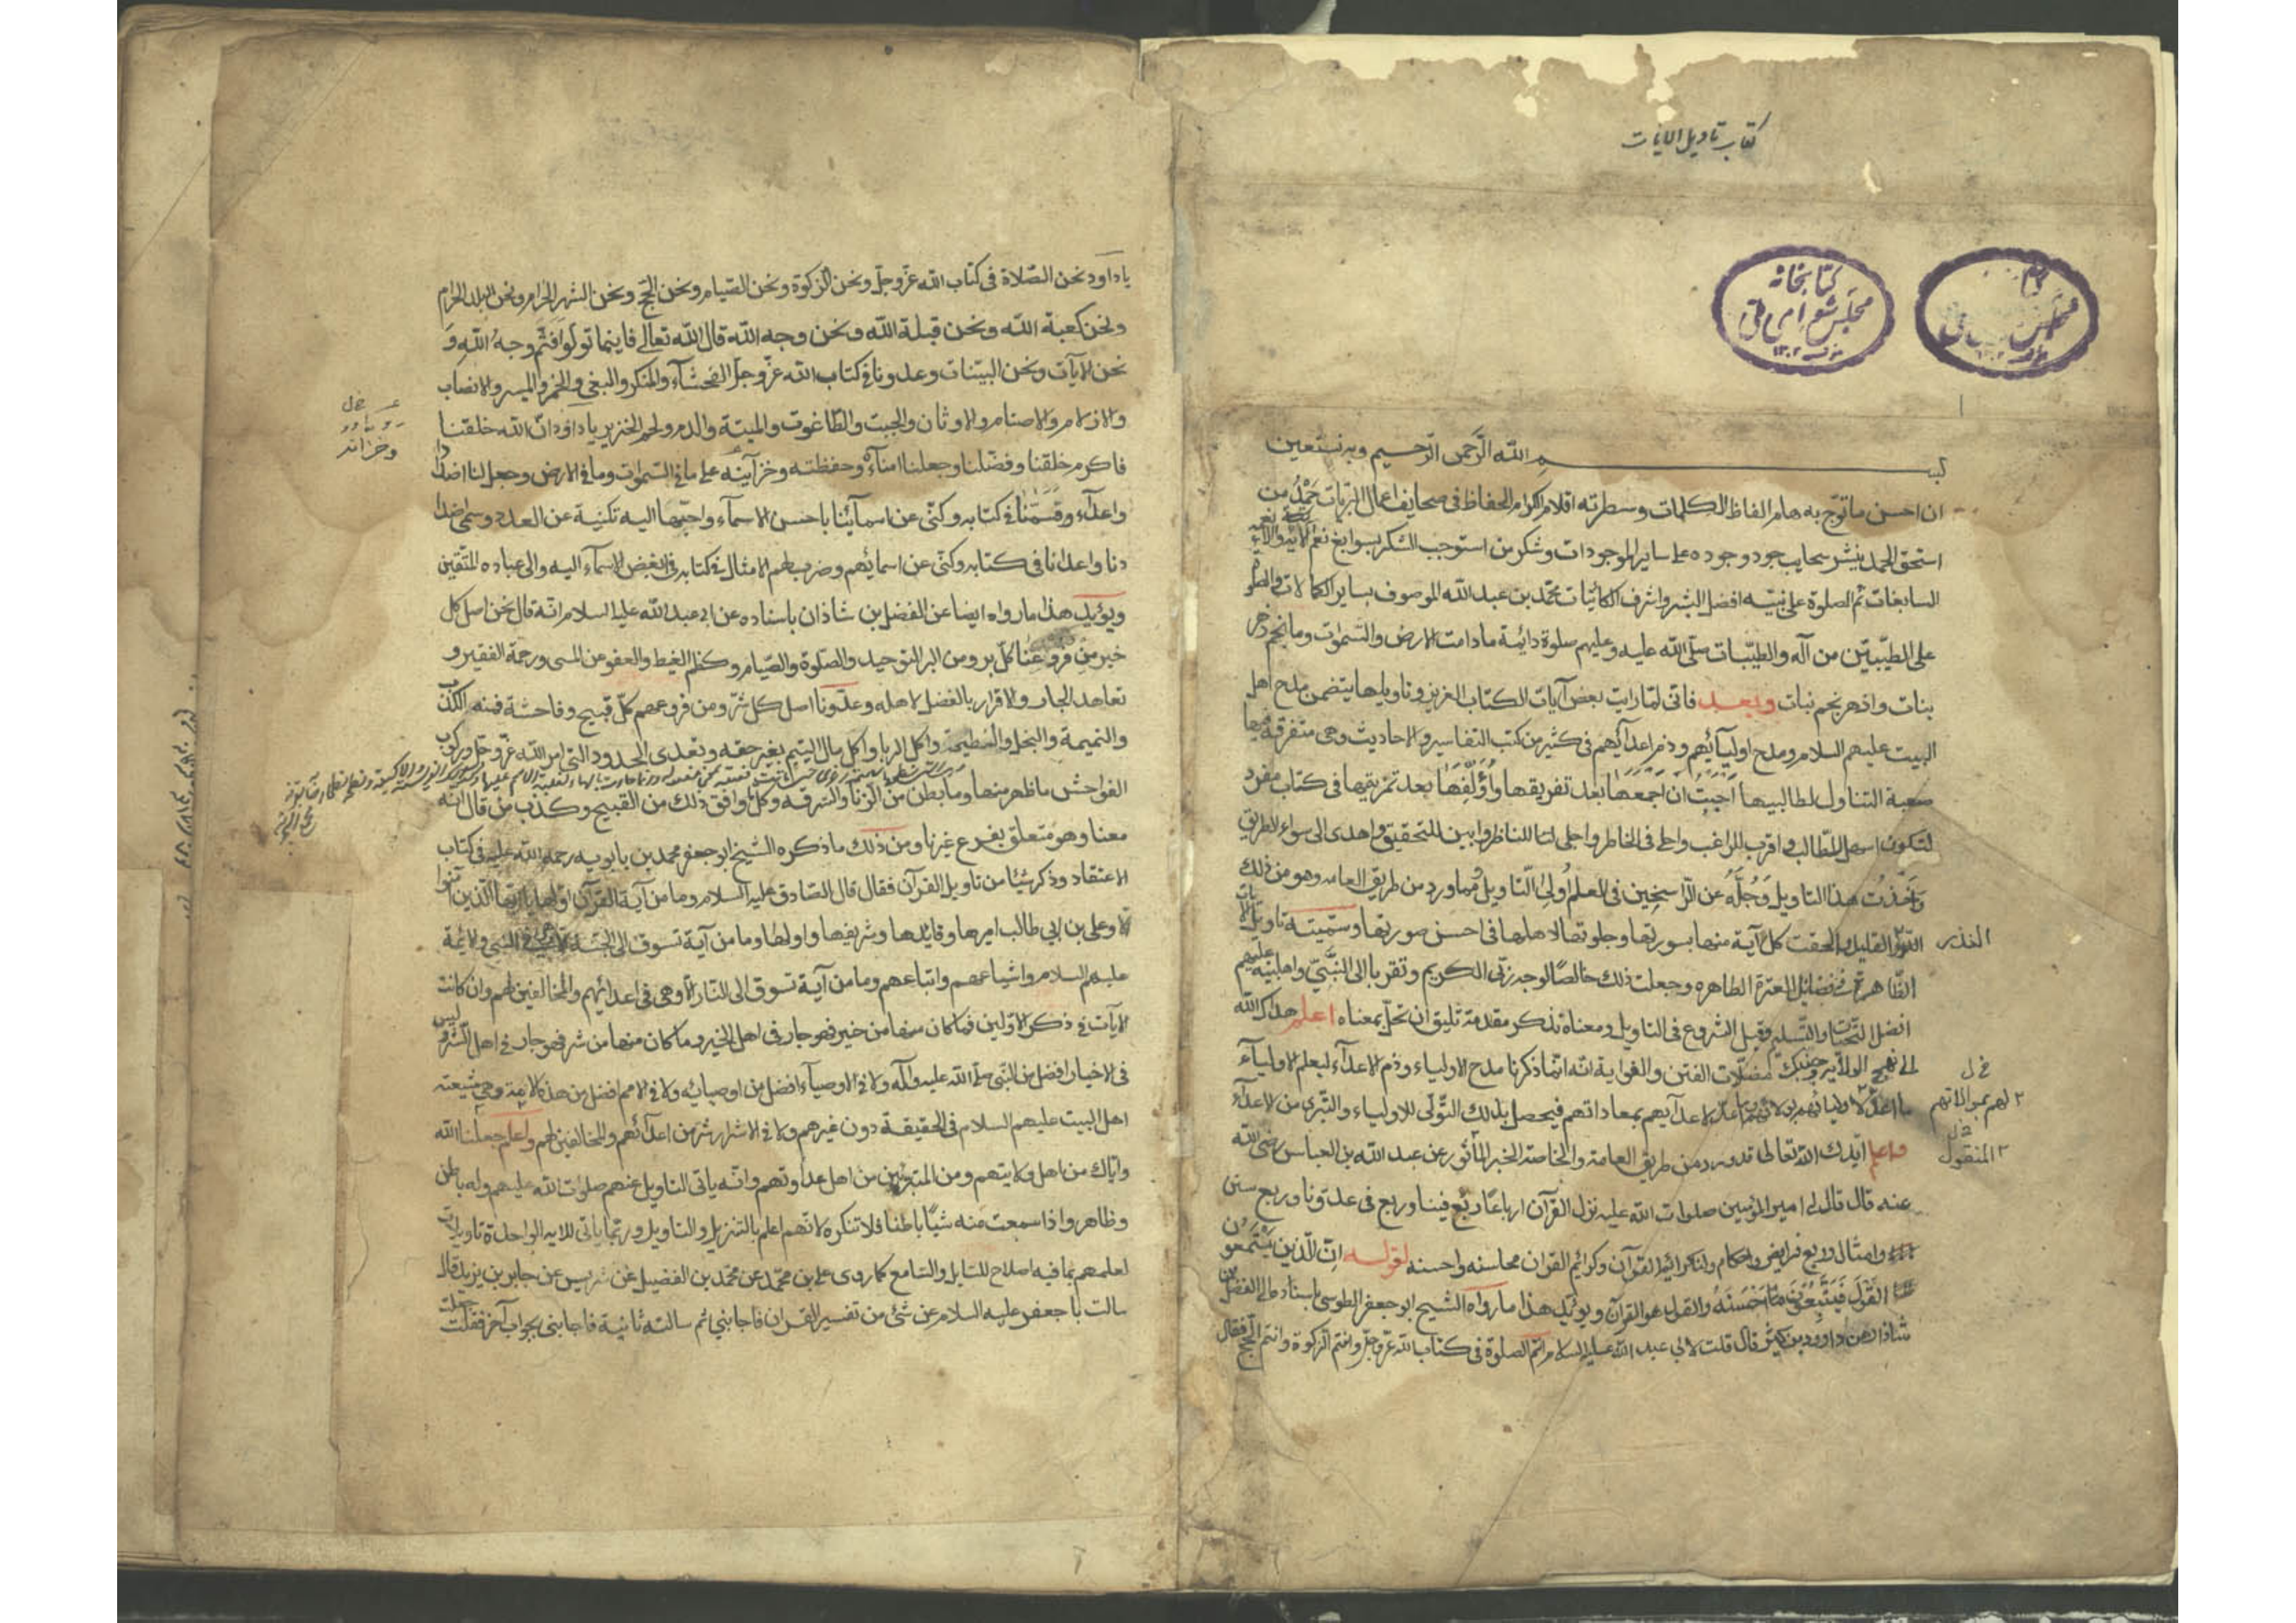 كتاب تاويل الايات
كتابخانه
مجلس شورای ملی
۱۳۰۲
بسم الله الرحمن الرحيم وبه نستعين
ان احسن ماتوج به هام الفاظ الكلمات وسطرته اقلام الكرام الحفاظ فى صحايف اعمال البريات حمد من
استحق الحمد بنشر سحايب جود وجوده على ساير الموجودات وشكر من استوجب الشكر بسوابغ نعم
السابغات ثم الصلوة على نبيه افضل البشر واشرف الكائنات محمد بن عبد الله الموصوف بساير الكمالات والصلو
على الطيبين من آله والطيبات صلى الله عليه وعليهم صلوة دائمة مادامت الارض والسموات وما نجم
نبات وازهر نجم نبات وبعد فانى لما رايت بعض آيات الكتاب العزيز وتاويلها يتضمن مدح اهل
البيت عليهم السلام ومدح اوليآئهم وذم اعدآئهم فى كثير من كتب التفاسير والاحاديث وهى متفرقة فيها
صعبة التناول لطالبيها احببت ان اجمعها بعد تفريقها واؤلفها بعد تمزيقها فى كتاب مفرد
لتكون اسهل للطالب واقرب للراغب واحلى فى الخاطر واجلى للناظر وابين للتحقيق واهدى الى سواء الطريق
واخذت هذا التاويل وجله عن الراسخين فى العلم اولى التاويل ومما ورد من طريق العامه وهو من ذلك
النزر القليل والحقت كل آية منها بسورتها وجلوتها لاهلها فى احسن صورتها وسميته تاويل الايات
النذر
الظاهرة فى فضائل العترة الطاهره وجعلت ذلك خالصا لوجه ربى الكريم وتقربا الى النبى واهلبيته عليهم
افضل التحيات والتسليم وقبل الشروع فى التاويل ومعناه نذكر مقدمة تليق ان تحل بمعناه اعلم هداك الله
الى نهج الولاية وجنبك مضلات الفتن والغواية انه انما ذكرنا مدح الاولياء وذم الاعدآء ليعلم الاوليآء
ما اعد لاعدآيهم بمعاداتهم فيحصل بذلك التولى للاولياء والتبرى من الاعدآء
لهم بموالاتهم
واعلم ايدك الله تعالى قد ورد من طريق العامة والخاصة الخبر المأثور عن عبد الله بن العباس رضى الله
المنقول
عنه قال قال لى امير المؤمنين صلوات الله عليه نزل القرآن ارباعا ربع فينا وربع فى عدونا وربع سنن
وامثال وربع فرايض واحكام ولنا كرائم القرآن وكرائم القران محاسنه واحسنه لقوله ان الذين يستمعون
القول فيتبعون احسنه والقول هو القرآن ويؤيد هذا مارواه الشيخ ابو جعفر الطوسى باسناده الى الفضل بن
شاذان عن داوود بن كثير قال قلت لابى عبد الله عليه السلام انتم الصلوة فى كتاب الله عز وجل وانتم الزكوة وانتم الحج فقال
ياداود نحن الصلاة فى كتاب الله عز وجل ونحن الزكوة ونحن الصيام ونحن الحج ونحن الشهر الحرام ونحن البلد الحرام
ونحن كعبة الله ونحن قبلة الله ونحن وجه الله قال الله تعالى فاينما تولوا فثم وجه الله و
نحن الآيات ونحن البينات وعدونا فى كتاب الله عز وجل الفحشآء والمنكر والبغى والخمر والميسر والانصاب
والازلام والاصنام والاوثان والجبت والطاغوت والميتة والدم ولحم الخنزير ياداود ان الله خلقنا
فاكرم خلقنا وفضلنا وجعلنا امنآءه وحفظته وخزآينه على ما فى السموات وما فى الارض وجعل لنا اضدادا
واعدآء وقسمنا فى كتابه وكنى عن اسمآئنا باحسن الاسمآء واحبها اليه تكنية عن العدو وسمى اضدا
دنا واعدانا فى كتابه وكنى عن اسمائهم وضرب لهم الامثال فى كتابه فى ابغض الاسمآء اليه والى عباده المتقين
ويؤيد هذا مارواه ايضا عن الفضل بن شاذان باسناده عن ابى عبد الله عليه السلام انه قال نحن اصل كل
خير من فروعنا كل بر ومن البر التوحيد والصلوة والصيام وكظم الغيظ والعفو عن المسى ورحمة الفقير و
تعاهد الجار والاقرار بالفضل لاهله وعدونا اصل كل شر ومن فروعهم كل قبيح وفاحشة فمنهم الكذب
والنميمة والبخل والقطيعة واكل الربا واكل مال اليتيم بغير حقه وتعدى الحدود التى امر الله عز وجل وركوب
الفواحش ماظهر منها وما بطن من الزنا والسرقه وكل ما وافق ذلك من القبيح وكذب من قال انه
معنا وهو متعلق بفرع غيرنا ومن ذلك ما ذكره الشيخ ابو جعفر محمد بن بابويه رحمة الله عليه فى كتاب
الاعتقاد وذكر شيئا من تاويل القرآن فقال قال الصادق عليه السلام وما من آية القرآن اولها ياايها الذين آمنوا
الا وعلى بن ابي طالب اميرها وقايدها وشريفها واولها وما من آية تسوق الى الجنة الا فى النبى والائمة
عليهم السلام واشياعهم واتباعهم وما من آية تسوق الى النار الا وهى فى اعدائهم والمخالفين لهم وان كانت
الآيات فى ذكر الاولين فما كان منها من خير فهو جار فى اهل الخير وما كان منها من شر فهو جار فى اهل الشر وليس
فى الاخيار افضل من النبى صلى الله عليه وآله ولا فى الاوصيآء افضل من اوصيائه ولا فى الامم افضل من هذه الامة وهى شيعة
اهل البيت عليهم السلام فى الحقيقة دون غيرهم ولا فى الاشرار شر من اعدآئهم والمخالفين لهم واعلم جعلنا الله
واياك من اهل ولايتهم ومن المتبرئين من اهل عداوتهم وانه ياتى التاويل عنهم صلوات الله عليهم وله باطن
وظاهر واذا سمعت منه شيئا باطنا فلا تنكره لانهم اعلم بالتنزيل والتاويل وربما ياتى للايه الواحدة تاويلات
لعلمهم بما فيه اصلاح للسايل والسامع كما روى على بن محمد عن محمد بن الفضيل عن شريس عن جابر بن يزيد قال
سالت با جعفر عليه السلام عن شئ من تفسير القران فاجابنى ثم سالته ثانية فاجابنى بجواب آخر فقلت